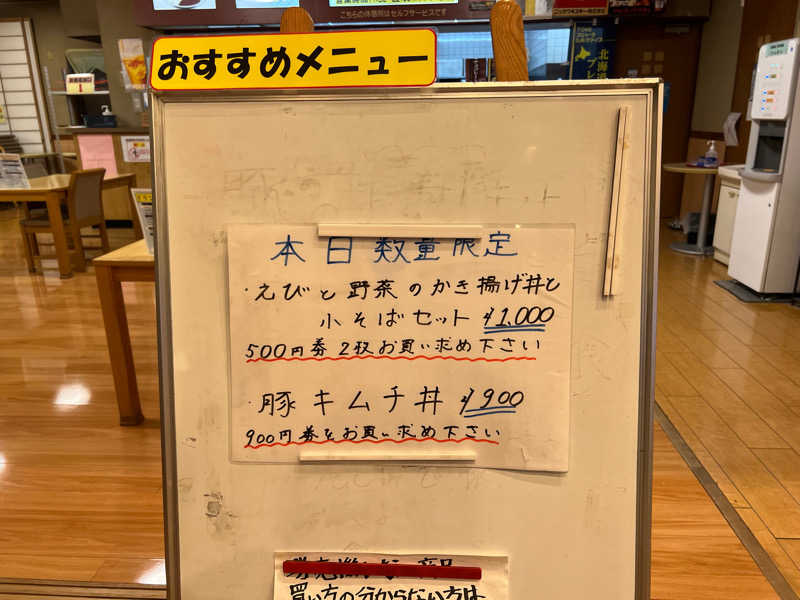 こちらの休憩所はセルフサービスです
おすすめメニュー
本日数量限定
・えびと野菜のかき揚げ丼と
小そばセット ¥1,000
500円券2枚お買い求め下さい
・豚キムチ丼 ¥900
900円券をお買い求め下さい
買い方の分からない方は